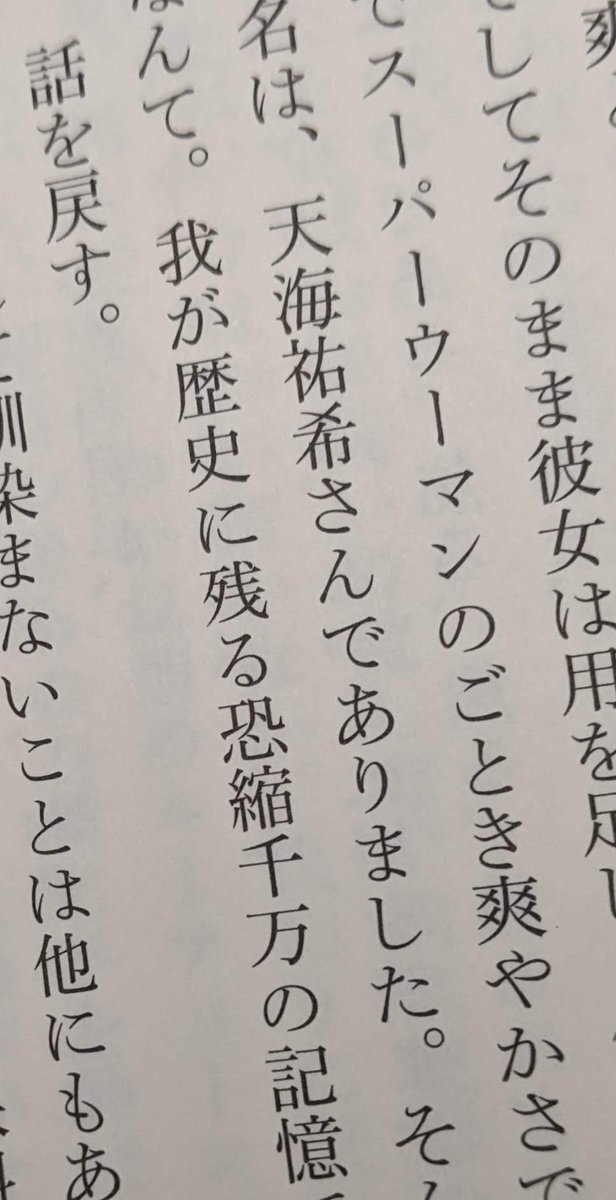 爽
してそのまま彼女は用を足し
てスーパーウーマンのごとき爽やかさで
名は、天海祐希さんでありました。そん
なんて。我が歴史に残る恐縮千万の記憶
話を戻す。
馴染まないことは他にもあ